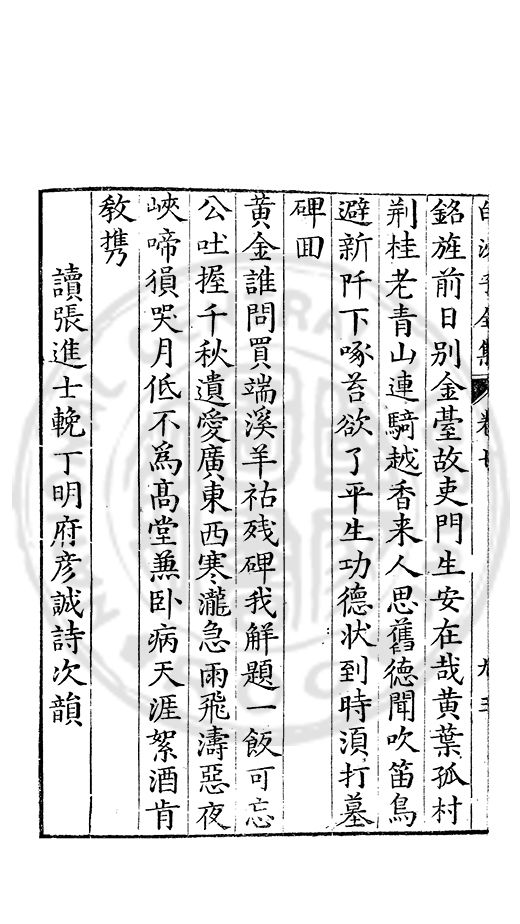 白沙子全集 卷七 九五
銘旌前日别金臺故吏門生安在哉黄葉孤村
荆桂老青山連騎越香来人思舊德聞吹笛鳥
避新阡下啄苔欲了平生功德状到時湏打墓
碑囬
黄金誰問買端溪羊祜残碑我觧題一飯可忘
公吐握千秋遺愛廣東西寒瀧急雨飛濤惡夜
峽啼猿哭月低不為髙堂兼卧病天涯絮酒肯
教携
讀張進士輓丁明府彦誠詩次韻